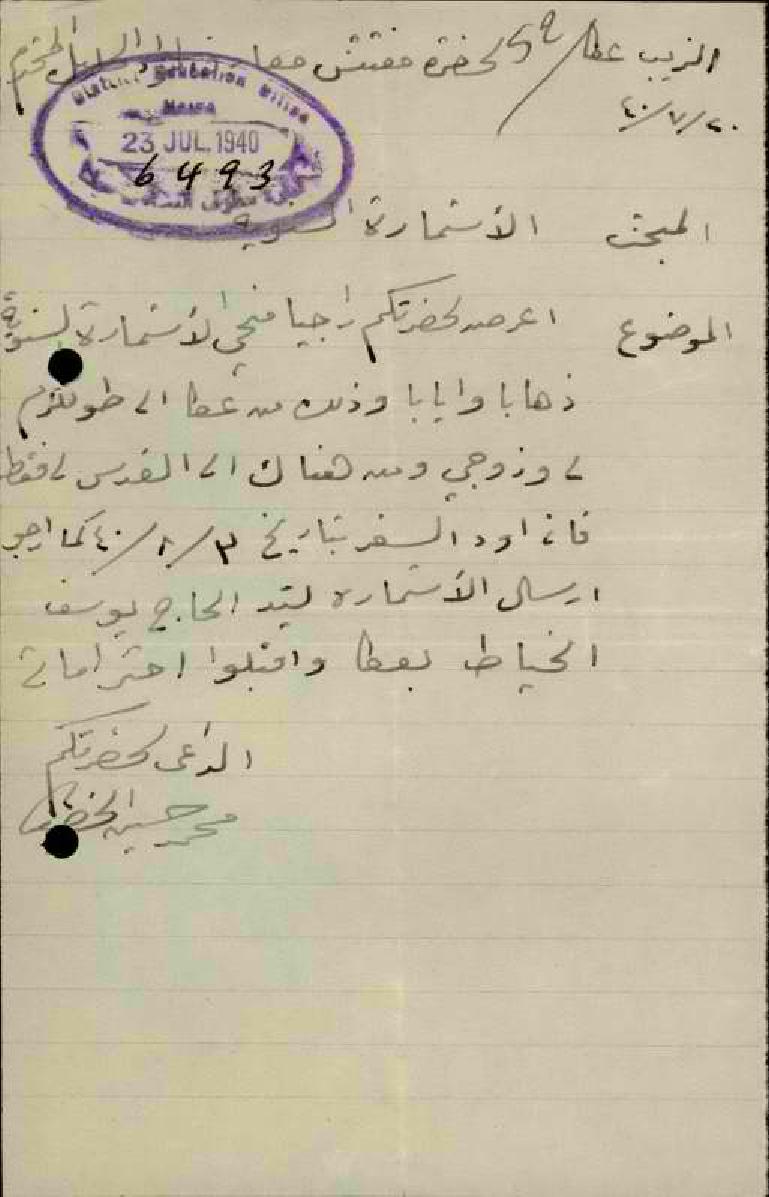 الزيب عكا لحضرة مفتش معارف لواء الجليل المحترم
٢٠/٧/٤٠
District Education Office
Haifa
23 JUL 1940
6493
المبحث الأستمارة السنوية
الموضوع اعرض لحضرتكم راجيا منحي الأستمارة السنوية
ذهابا وايابا وذلك من عكا الى طولكرم
لي وزوجي ومن هناك الى القدس لي فقط
فاني اود السفر بتاريخ ٣/٨/٤٠ كما ارجو
ارسال الأستمارة ليد الحاج يوسف
الخياط بعكا واقبلوا احتراماتي
الداعي لحضرتكم
محمد حسين